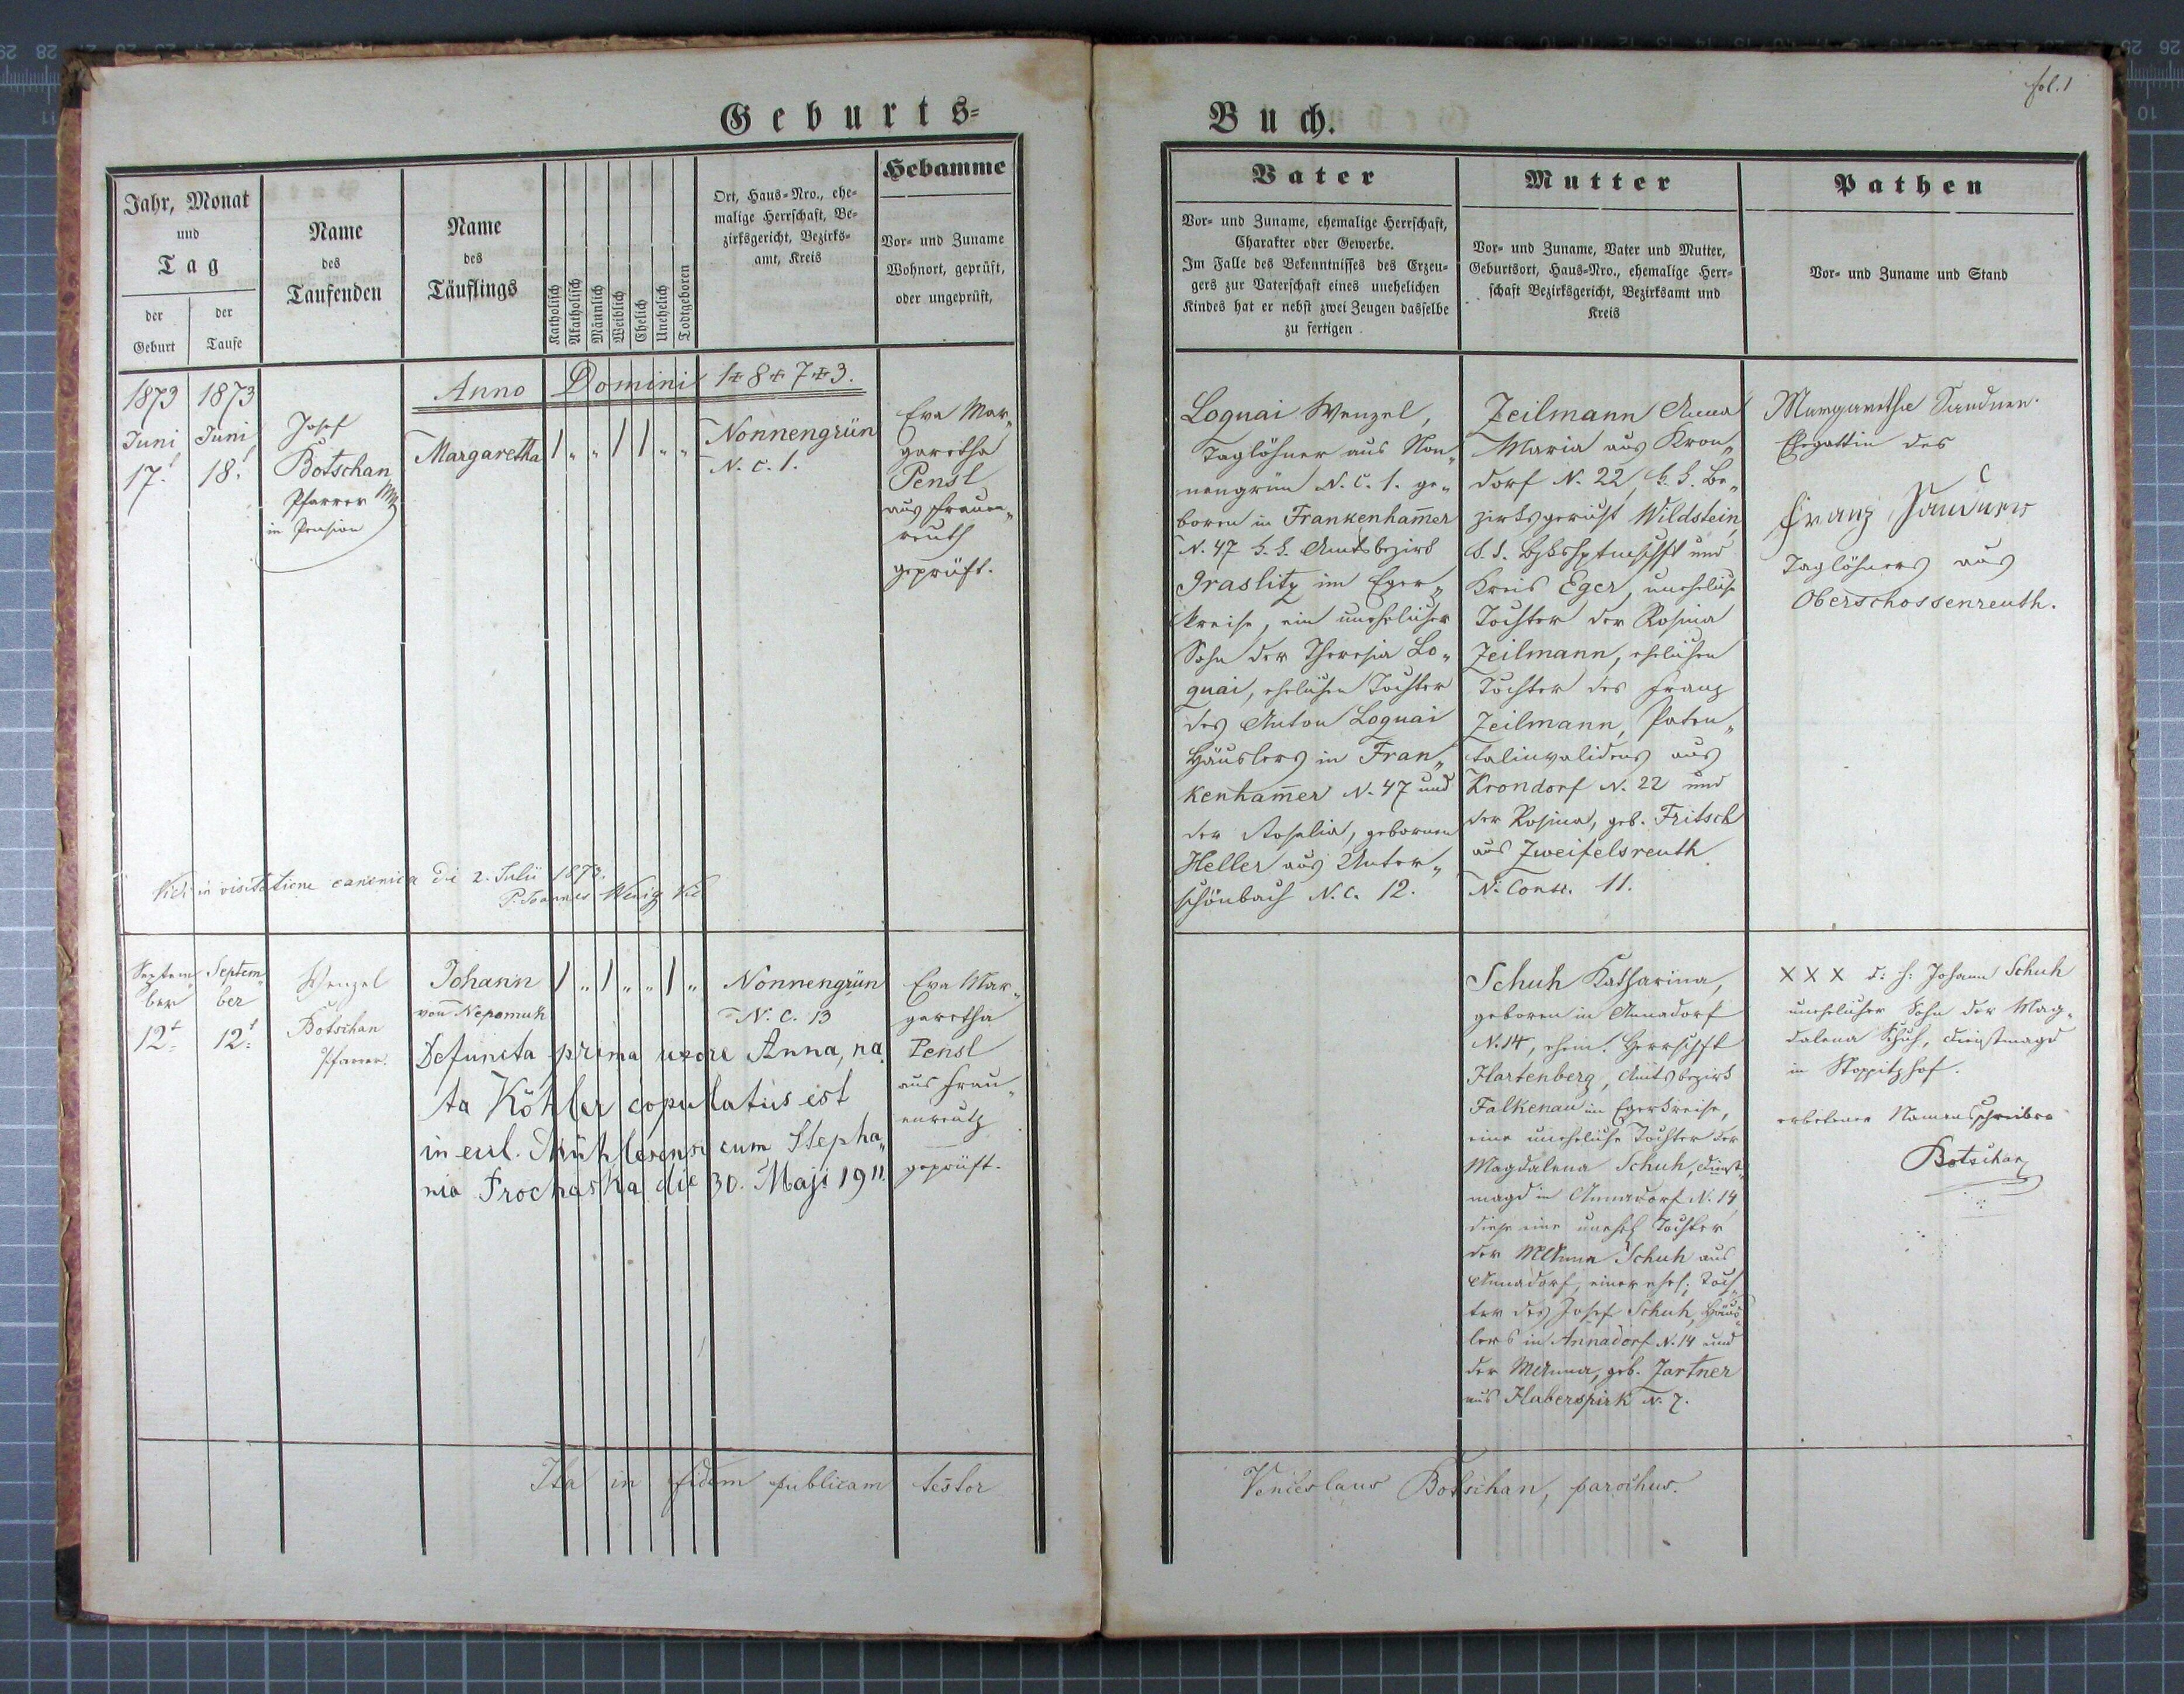 Geburts-
Buch.
fol. 1
Jahr, Monat
und
Tag
der
Geburt
der
Taufe
Name
des
Taufenden
Name
des
Täuflings
Katholisch
Akatholisch
Männlich
Weiblich
Ehelich
Unehelich
Todtgeboren
Ort, Haus-Nro., ehe-
malige Herrschaft, Be-
zirksgericht, Bezirks-
amt, Kreis
Hebamme
Vor- und Zuname
Wohnort, geprüft,
oder ungeprüft,
Vater
Vor- und Zuname, ehemalige Herrschaft,
Charakter oder Gewerbe.
Im Falle des Bekenntnisses des Erzeu-
gers zur Vaterschaft eines unehelichen
Kindes hat er nebst zwei Zeugen dasselbe
zu fertigen.
Mutter
Vor- und Zuname, Vater und Mutter,
Geburtsort, Haus-Nro., ehemalige Herr-
schaft Bezirksgericht, Bezirksamt und
Kreis
Pathen
Vor- und Zuname und Stand
Anno Domini 1+8+7+3.
1873
Juni
17.
1873
Juni
18.
Josef
Botschan
Pfarrer
in Pension
Margaretha
1 " " 1 1 " "
Nonnengrün
N. c. 1.
Eva Mar„
garetha
Pensl
aus Frauen„
reuth
geprüft.
Loquai Wenzel,
Taglöhner aus Non„
nengrün N. C. 1. ge„
boren in Frankenham̅er
N. 47 k. k. Amtsbezirk
Graslitz im Eger„
kreise, ein unehelicher
Sohn der Theresia Lo„
quai, ehelichen Tochter
des Anton Loquai
Häuslers in Fran„
kenham̅er N. 47 und
der Rosalia, gebornen
Heller aus Unter„
schönbach N. C. 12.
Zeilmann Anna
Maria aus Kron„
dorf N. 22, k. k. Be„
zirksgericht Wildstein,
k. k. Bzkshptmschft und
Kreis Eger, uneheliche
Tochter der Rosina
Zeilmann, ehelichen
Tochter des Franz
Zeilmann, Paten„
talinvalidens aus
Krondorf N. 22 und
der Rosina, geb. Fritsch
aus Zweifelsreuth
N. Consc. 11.
Margaretha Sandner
Ehegattin des
Franz Sandners
Taglöhners aus
Oberschossenreuth.
Vidi in visitatione canonica die 2. Julii 1873.
P. Joannes Wenig Vic
Septem„
ber
12t
Septem„
ber
12t
Wenzel
Botschan
Pfarrer.
Johann
von Nepomuk
1 " 1 " " 1 "
Nonnengrün
N. C. 13
Eva Mar„
garetha
Pensl
aus Frau„
enreuth
geprüft.
Defuncta prima uxore Anna, na„
ta Köhler copulatus est
in eccl. Mühlesensi cum Stepha„
nia Prochaska die 30. Maji 1911.
Schuh Katharina,
geboren in Annadorf
N. 14, ehem. Herrschft
Hartenberg, Amtsbezirk
Falkenau im Egerkreise,
eine uneheliche Tochter der
Magdalena Schuh, Dienst„
magd in Annadorf N. 14
diese eine unehel. Tochter
der MAnna Schuh aus
Annadorf, einer ehel. Toch„
ter des Josef Schuh, Häus„
lers in Annadorf N. 14 und
der MAnna, geb. Zartner
aus Haberspirk N. 7.
X X X d. h. Johann Schuh
unehelicher Sohn der Mag„
dalena Schuh, Dienstmagd
in Stoppitzhof.
erbetener Namensschreiber
Botschan
Ita in fidem publicam testor
Venceslaus Botschan, parochus.